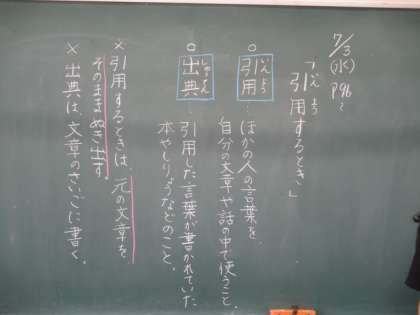 7/3
(水)
P96〜
「引用するとき」
いん よう
○引用…ほかの人の言葉を
いん よう
自分の文章や話の中で使うこと。
○出典…引用した言葉が書かれていた
しゅってん
本やしりょうなどのこと。
※引用するときは、元の文章を
そのままぬき出す。
※出典は、文章のさいごに書く。